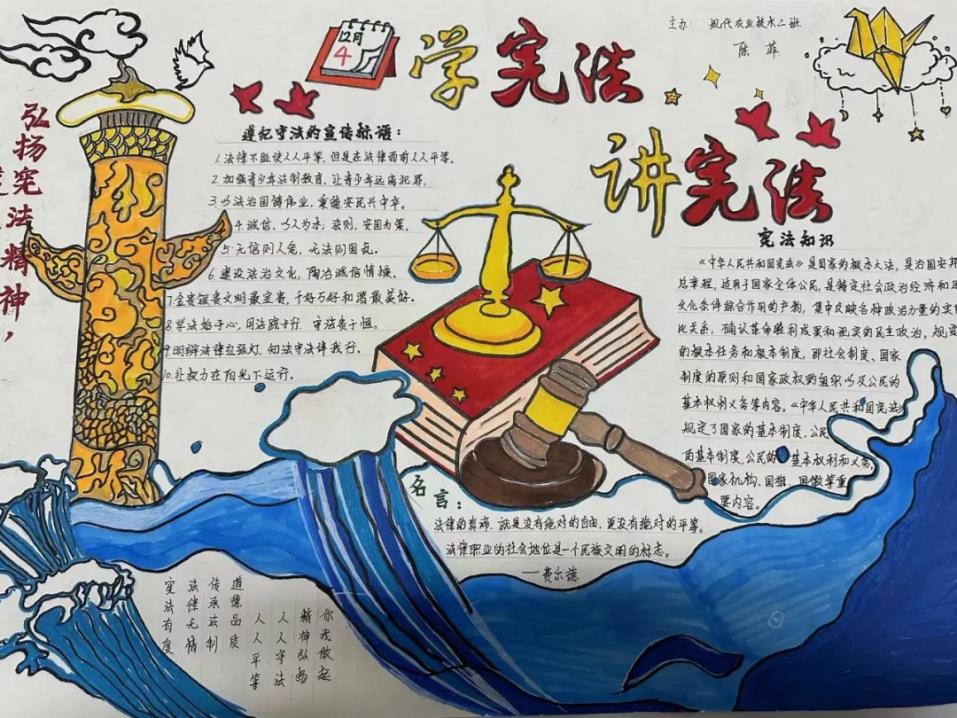 主办: 现代农业技术二班
陈萍
12月
4
学宪法
讲宪法
弘扬宪法精神，
遵纪守法的宣传标语:
1.法律不能使人人平等,但是在法律面前人人平等。
2.加强青少年法制教育,让青少年远离犯罪。
3.以法治国铸伟业,秉德安民兴中华。
4.诚信、以人为本,法则、安国为策。
5.无信则人危,无法则国乱。
6.建设法治文化,陶冶诚信情操。
7.金贵银贵文明最宝贵,千好万好和谐最美好。
8.学法始于心,用法践于行,守法贵于恒。
9.明辨法律红绿灯,知法守法伴我行。
10.让权力在阳光下运行。
宪法知识
《中华人民共和国宪法》是国家的根本大法,是治国安邦
总章程,适用于国家全体公民,是特定社会政治经济和思
文化条件综合作用的产物,集中反映各种政治力量的实
比关系,确认革命胜利成果和现实的民主政治,规定
的根本任务和根本制度,即社会制度、国家
制度的原则和国家政权的组织以及公民的
基本权利义务等内容。《中华人民共和国宪法》
规定了国家的基本制度,公民
的基本制度,公民的基本权利和义务,
国家机构、国旗、国徽等重
要内容。
名言:
法律的真谛,就是没有绝对的自由,更没有绝对的平等。
法律职业的社会地位是一个民族文明的标志。
——费尔德
道德品质
传承法制
法律无情
宪法有度
你我做起
精神弘扬
人人守法
人人平等